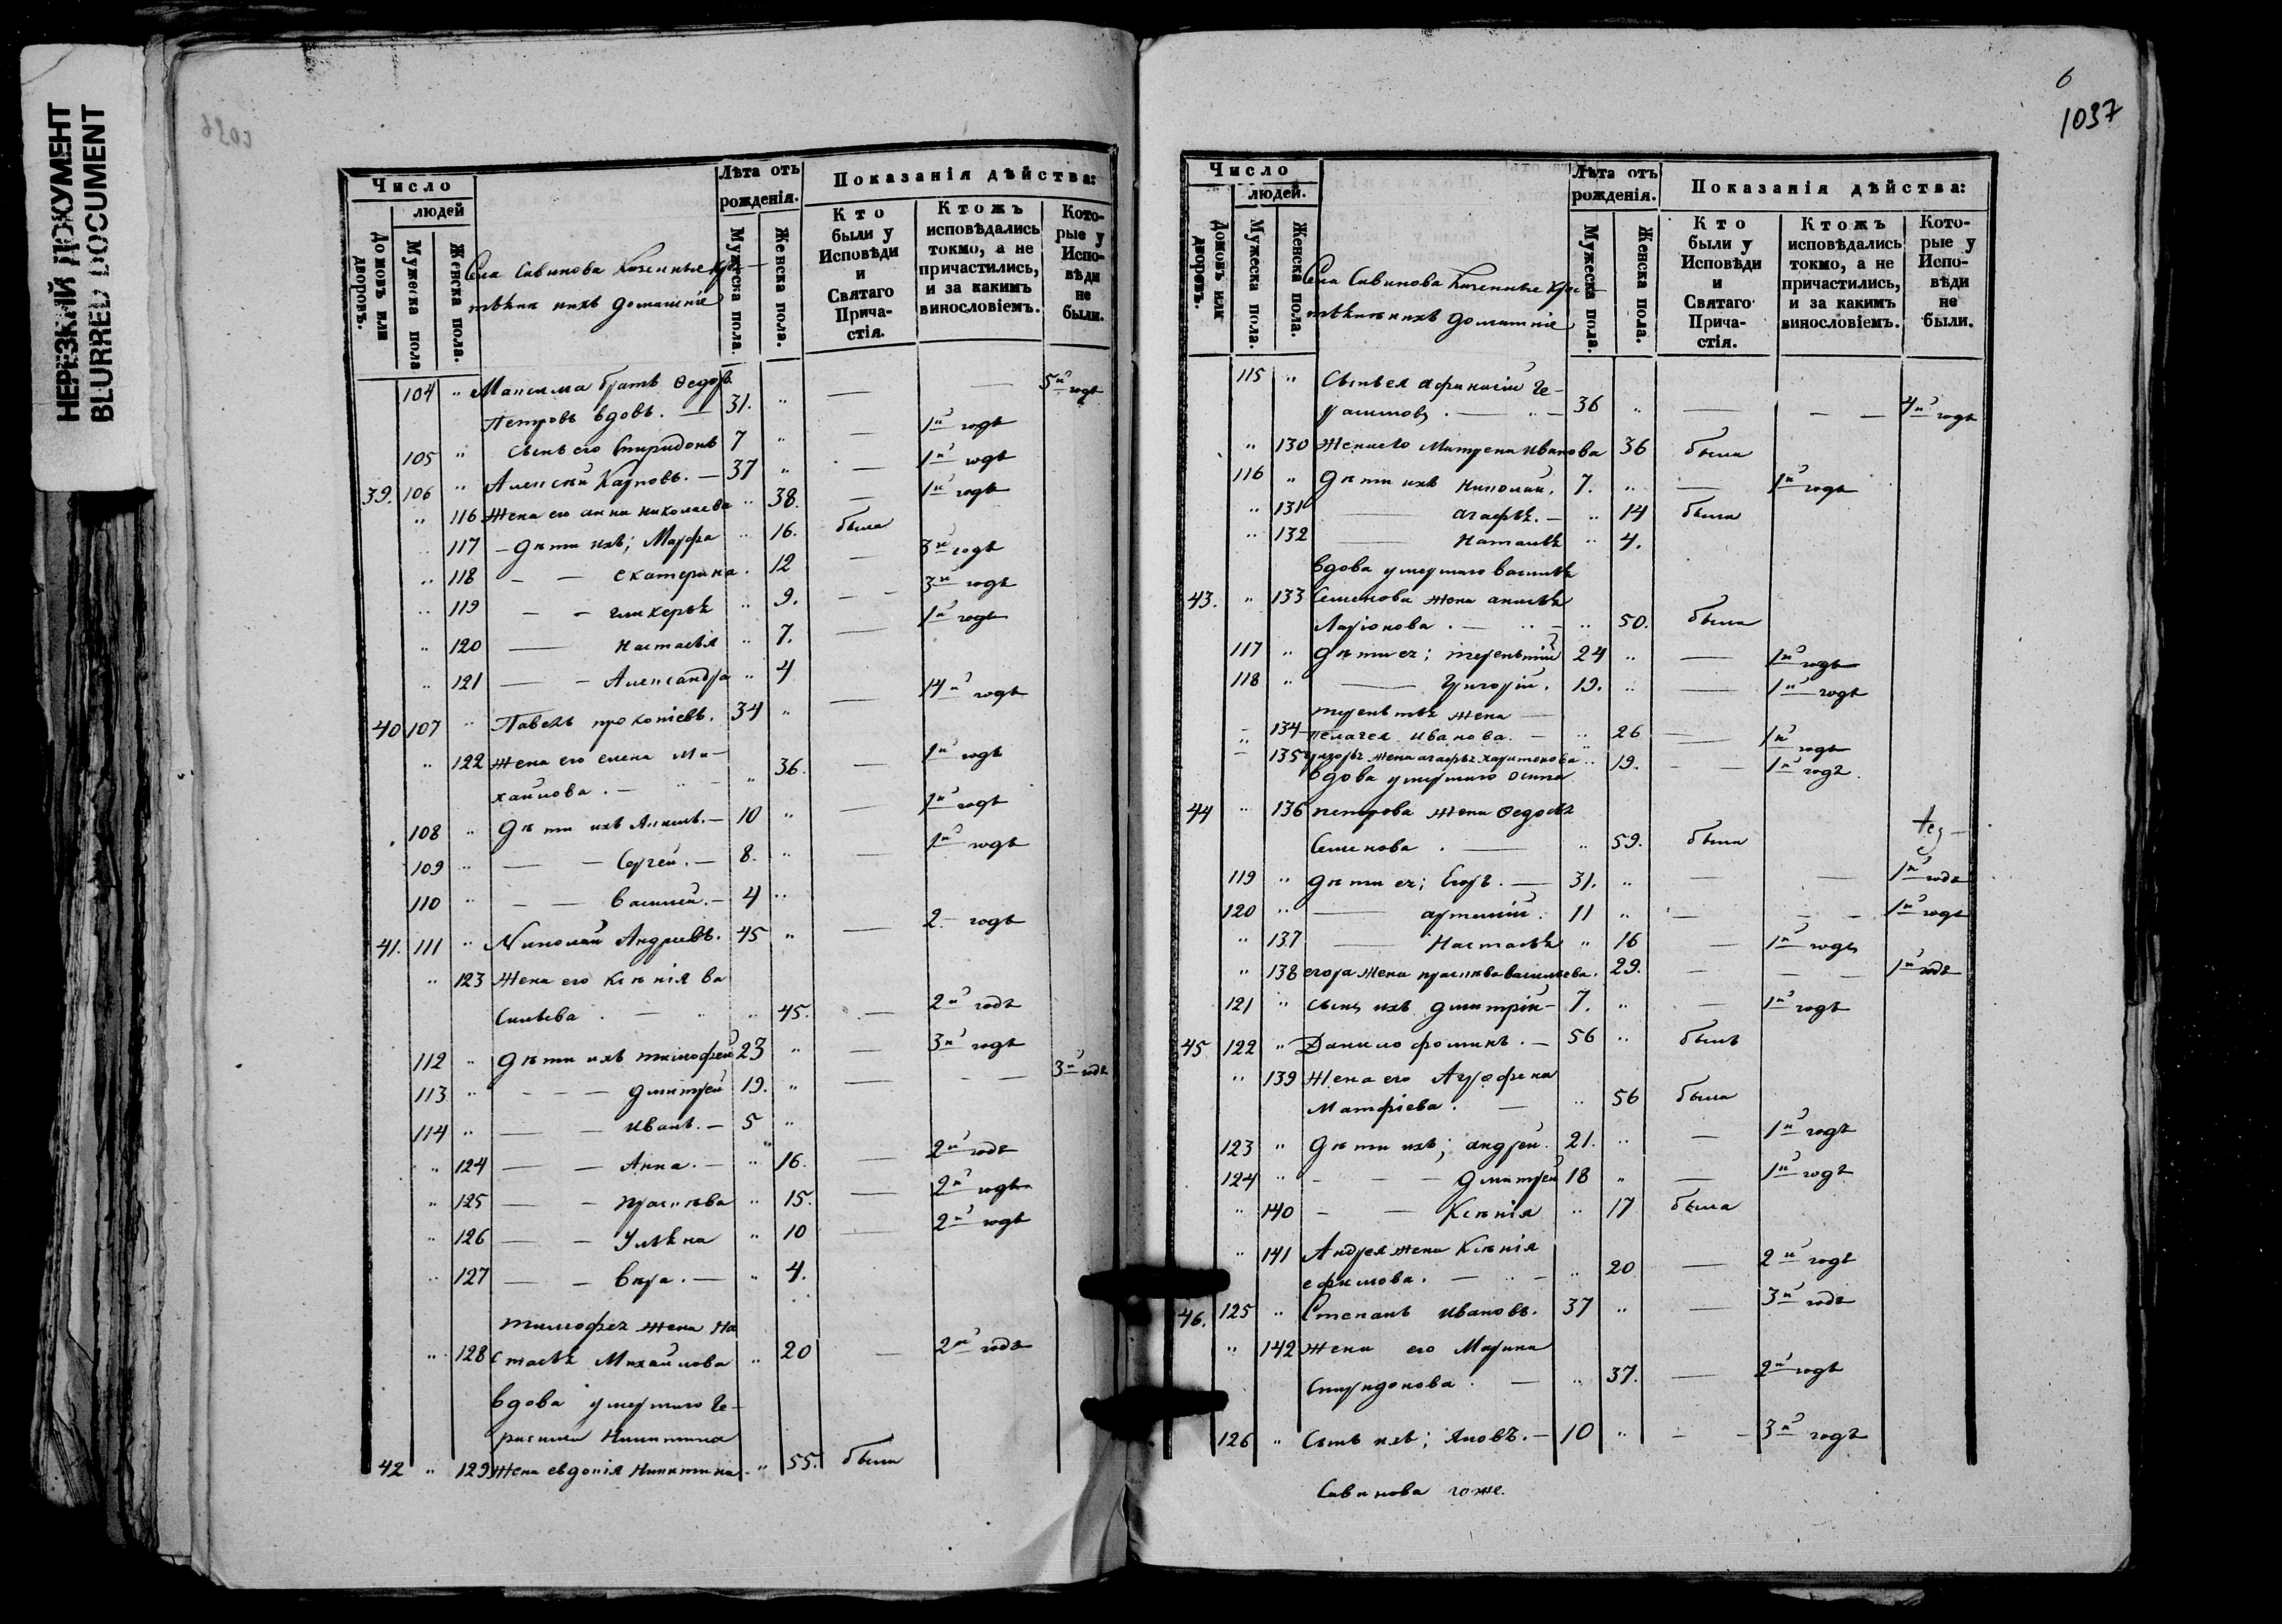 НЕРЕЗКИЙ ДОКУМЕНТ
BLURRED DOCUMENT
Число
людей
Домовъ или дворовъ.
Мужеска пола
Женска пола.
Села Савинова Казенные кре-
стьяна ихъ домашніе
Лѣта отъ рожденія.
Мужеска пола.
Женска пола.
Показанія дѣйства:
Кто были у Исповѣди и Святаго Прича-стія.
Ктожъ исповѣдались токмо, а не причастились, и за какимъ винословіемъ.
Кото-рые у Испо-вѣди не были.
104 " Максима братъ Ѳедоръ
Петровъ вдовъ. — 31. " — — 5й годъ
105 " Сынъ его Спиридонъ 7 " — 1й годъ
39. 106 " Алексѣй Карповъ. — 37 " — 1й годъ
" 116 Жена его анна николаева " 38. — 1й годъ
" 117 — дѣти ихъ; Марфа " 16. была
" 118 — — екатерина. 12 — 3й годъ
" 119 — — гликерья " 9. — — 3й годъ
" 120 — настасья " 7. — 1й годъ
" 121 — — Александра " 4
40 107 " Павелъ прокопіевъ. 34 " — 14й годъ
" 122 Жена его елена Ми-
хайлова. — " 36. — 1й годъ
108 " Дѣти ихъ Акимъ. — 10 " — 1й годъ
109 " — — Сергей. — 8. " — 1й годъ
110 " — — василей. — 4 "
41. 111 " Николай Андреевъ. 45 " 2 годъ
" 123 Жена его Ксѣнія ва
сильева. — " 45. — 2й годъ
112 " Дѣти ихъ тимофей 23 " — 3й годъ
113 " — — — дмитрей 19. " — — — 3й годъ
114 " — — иванъ. — 5 "
" 124 — — Анна. — " 16. — 2й годъ
" 125 — — прасковья " 15. — 2й годъ
" 126 — — Ульяна " 10 — 2й годъ
" 127 — — вѣра. — " 4.
тимофея жена на
" 128 стасья Михайлова " 20 — 2й годъ
вдова умершаго Ге-
расима Никитина
42 " 129 Жена евдокія Никитина " 55. была
6
1037
Число
людей.
Домовъ или дворовъ.
Мужеска пола.
Женска пола.
Села Савинова Казенные кре-
стьяна ихъ домашніе
Лѣта отъ рожденія.
Мужеска пола.
Женска пола.
Показанія дѣйства:
Кто были у Исповѣди и Святаго Прича-стія.
Ктожъ исповѣдались токмо, а не причастились, и за какимъ винословіемъ.
Кото-рые у Испо-вѣди не были.
115 " Сынъ ея афанасій Ге-
расимовъ. — 36 " — — — 4й годъ
" 130 Жена его Матрена иванова 36 была
116 " Дѣти ихъ николай. 7. " — 1й годъ
" 131 — агафья. — " 14 была
" 132 — наталья " 4.
вдова умершаго василья
43. " 133 Семенова жена акилина
Ларіонова. — " 50. была
117 " Дѣти ея; терентій 24 " — 1й годъ
118 " — Григорій. 19. " — 1й годъ
терентья жена —
" 134 пелагея иванова. — " 26 — 1й годъ
135 григорья жена агафья харитонова " 19. — — 1й годъ
вдова умершаго осипа
44 " 136 петрова жена Ѳедосья
Семенова. — " 59. была
119 " Дѣти ея; Егоръ. — 31. " — — 1й годъ
120 " — артемій. 11 " — — — 1й годъ
" 137 — Настасья " 16 — 1й годъ
" 138 егора жена прасковья васильева. 29. — — 1й годъ
121 " сынъ ихъ дмитрій — 7. " — 1й годъ
45 122 " Данило фоминъ. — 56 " былъ
" 139 Жена его Аграфена
Матфіева. — " 56 была
123 " Дѣти ихъ; андрей. 21. " — 1й годъ
124 " — — — дмитрей 18 " — 1й годъ
" 140 — — Ксѣнія " 17 была
" 141 Андрея жена Ксѣнія
ефимова. — " 20 — 2й годъ
46. 125 " Степанъ ивановъ. 37 " — 3й годъ
" 142 Жена его Марина
Спиридонова. — " 37. — 2й годъ
126 " Сынъ ихъ; Яковъ. — 10 " — — 3й годъ
Савинова